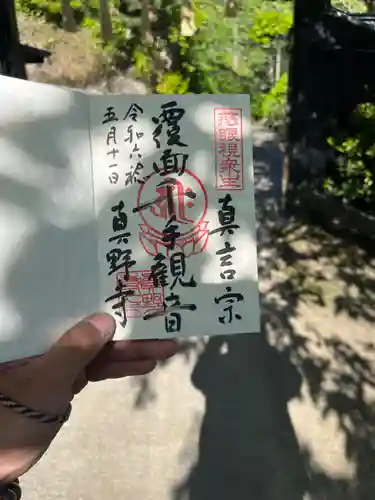 慈眼視衆生
真言宗
覆面千手観音
真野寺
令和六稔
五月十一日